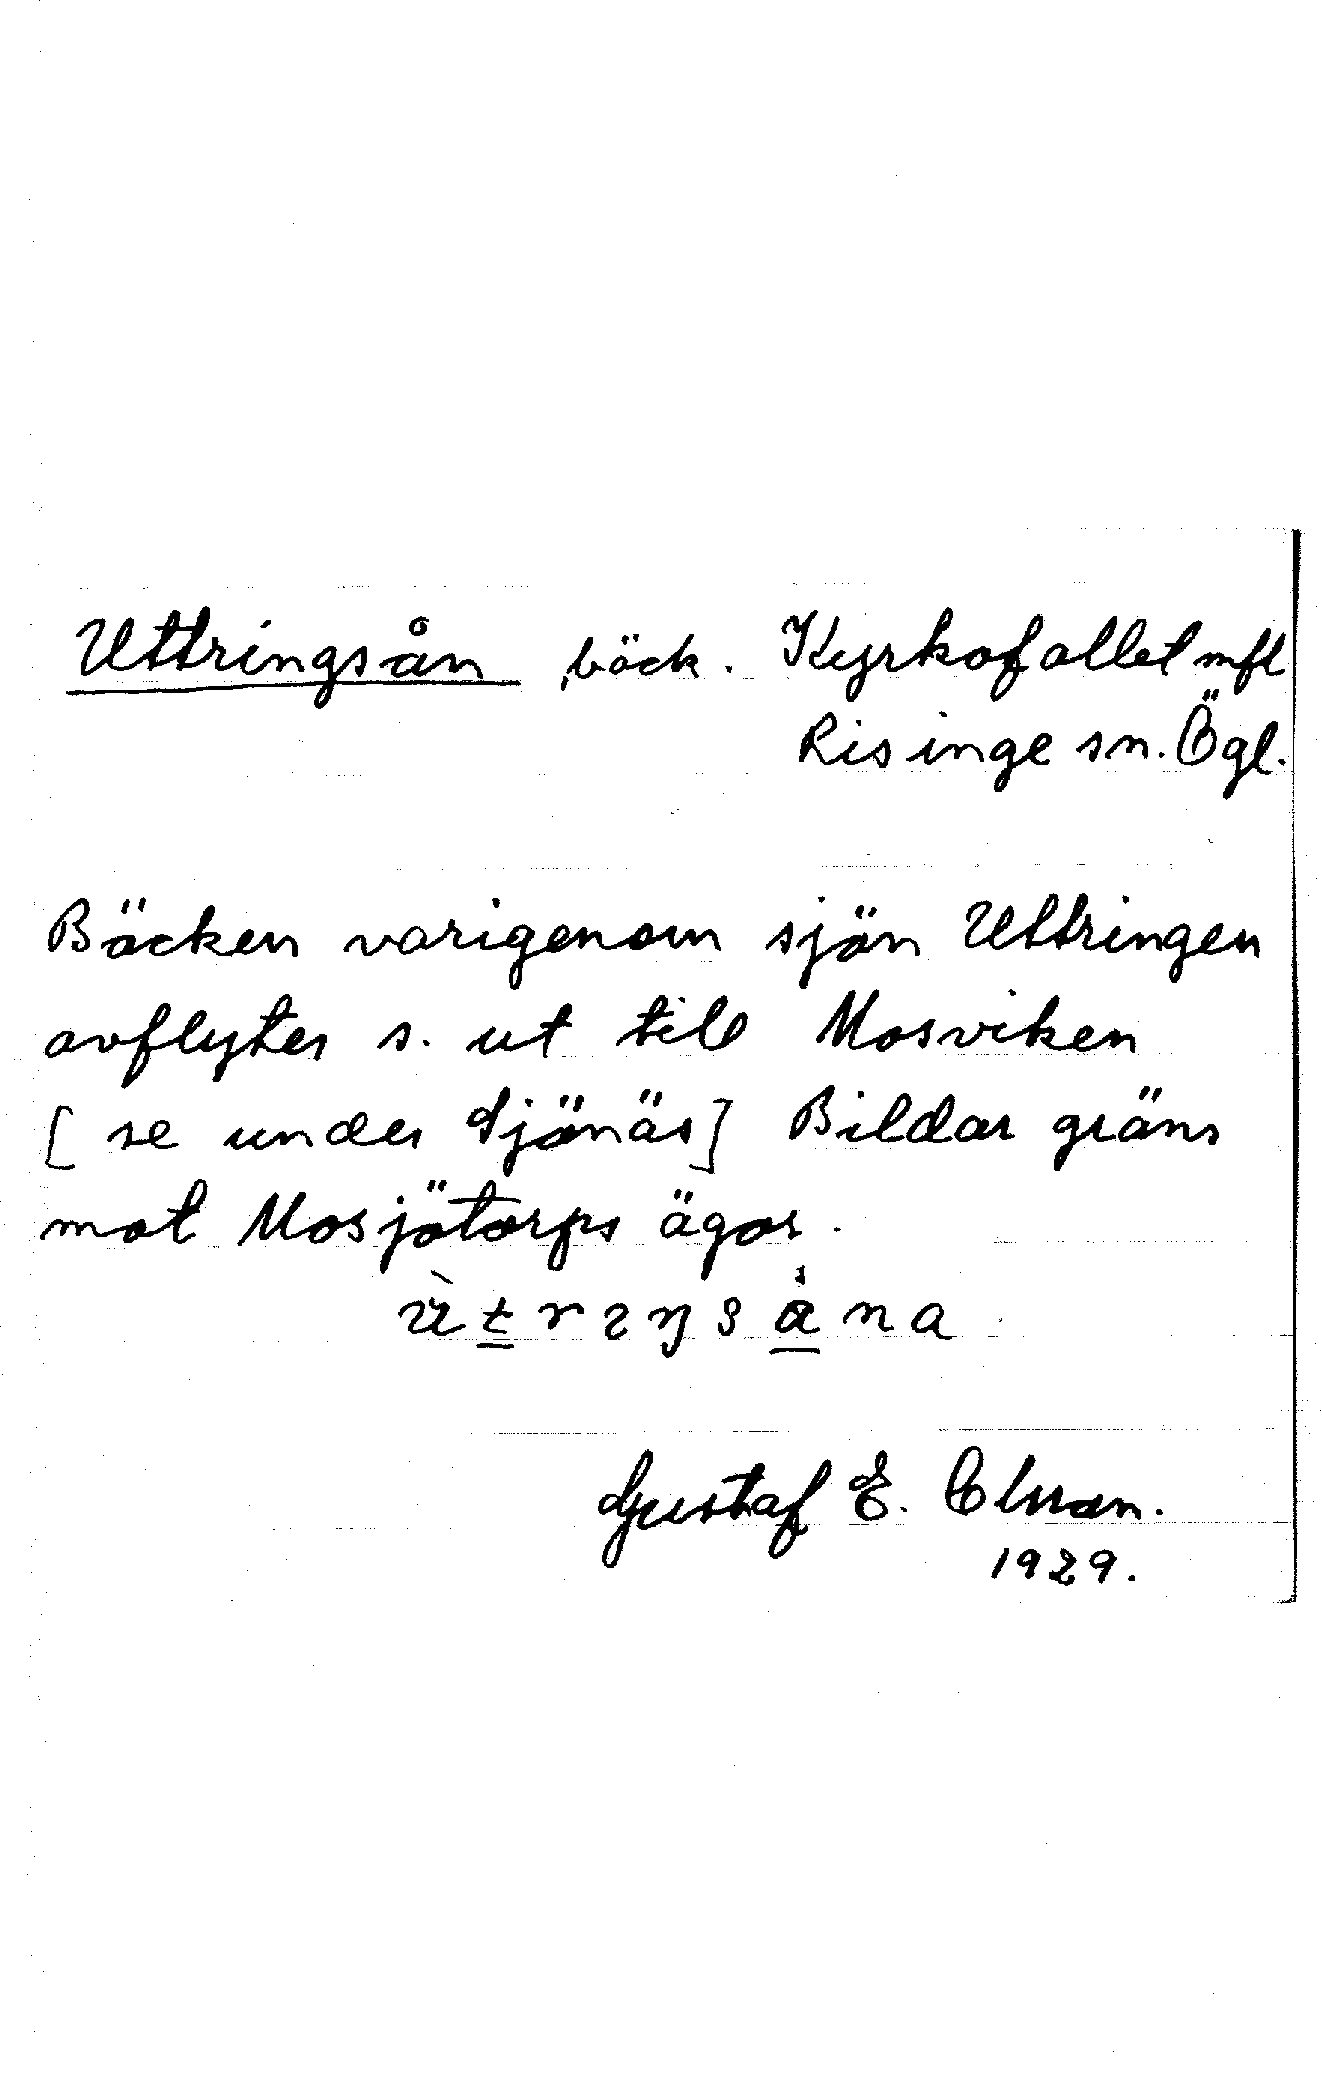 Uttringsån, bäck. Kyrkofallet mfl
Risinge sn. Ögl.
Bäcken varigenom sjön Uttringen
avflyter s. ut till Mosviken
[se under Sjönäs] Bildar gräns
mot Mosjötorps ägor.
Gustaf E.
1929.